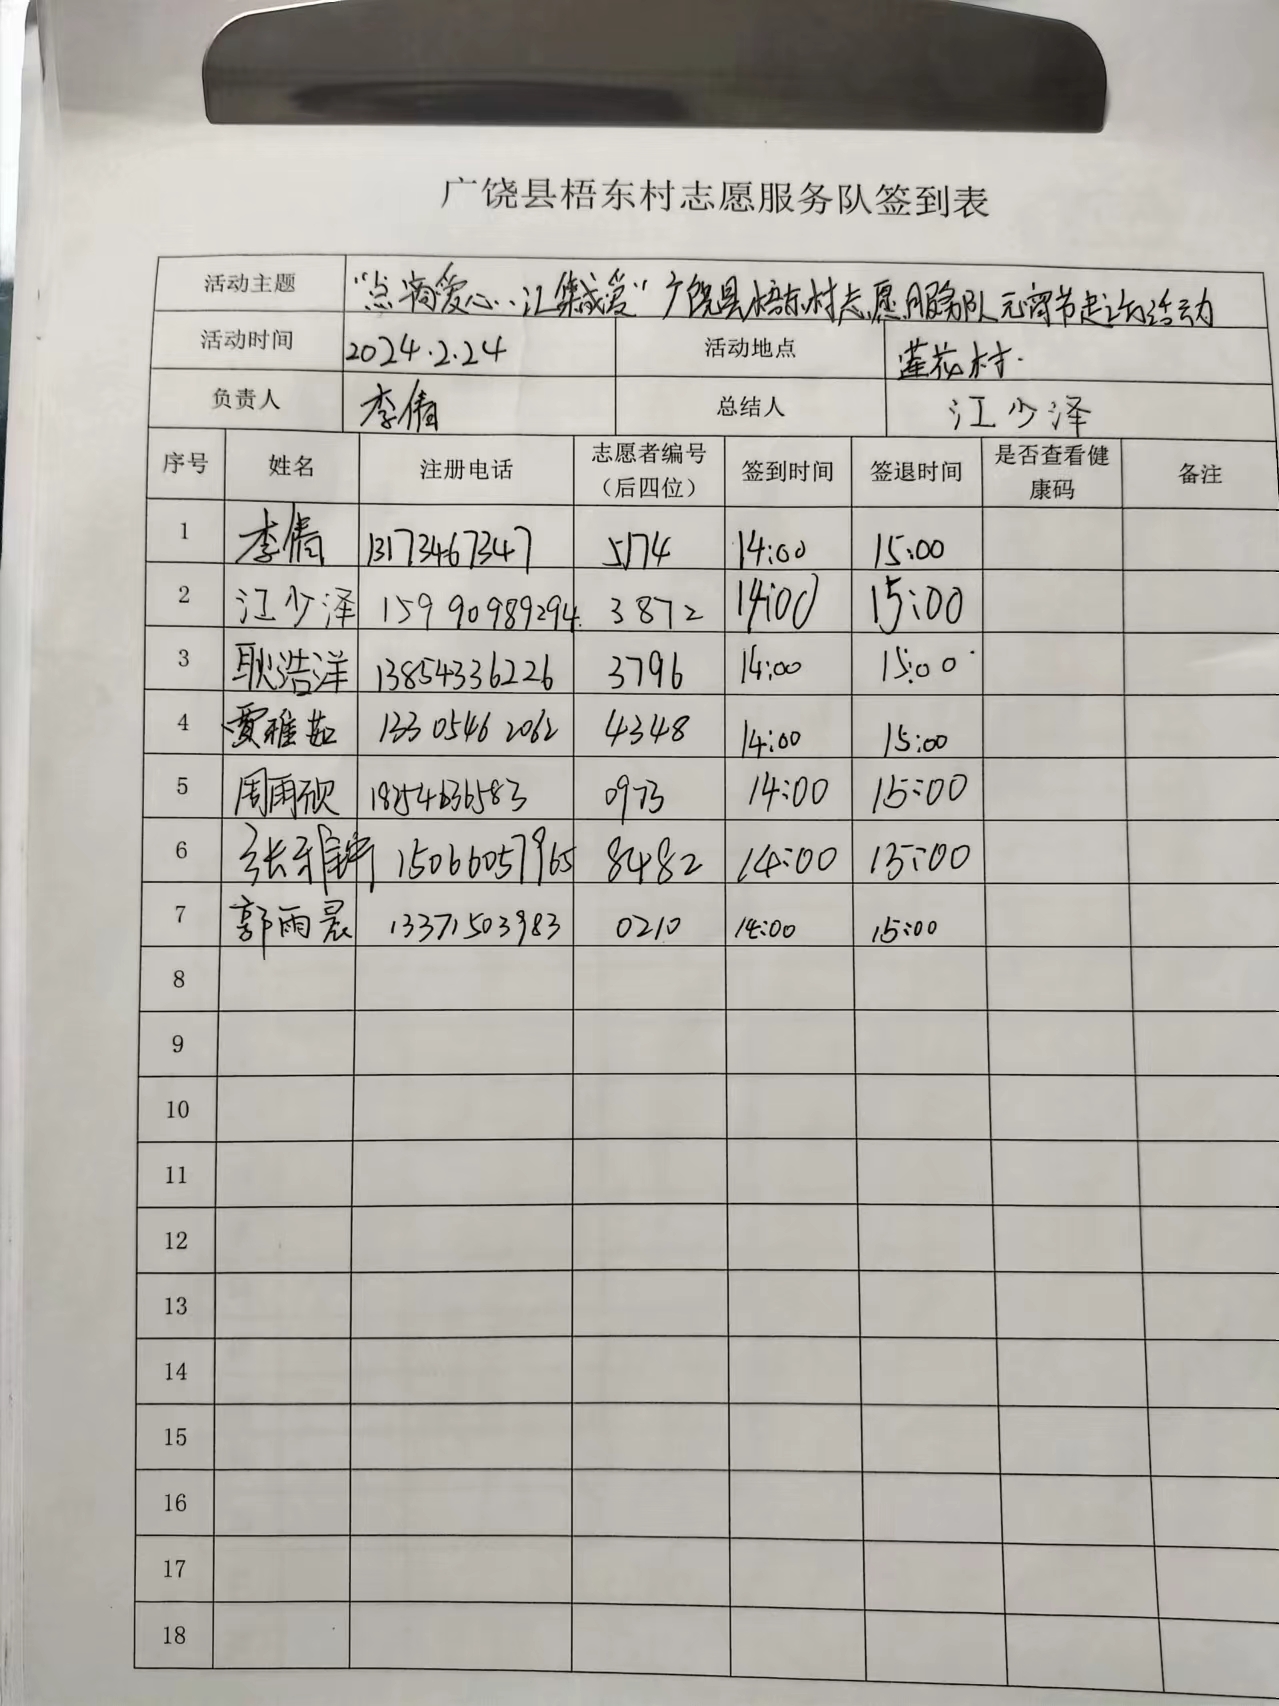 广饶县梧东村志愿服务队签到表
活动主题 “点滴爱心..汇集成爱”广饶县梧东村志愿服务队元宵节走访活动
活动时间 2024.2.24 活动地点 莲花村.
负责人 李倩 总结人 江少泽
序号 姓名 注册电话 志愿者编号（后四位） 签到时间 签退时间 是否查看健康码 备注
1 李倩 13173467347 5174 14:00 15:00
2 江少泽 15990989294 3872 14:00 15:00
3 耿浩洋 13854336226 3796 14:00 15:00
4 贾雅茹 13305462062 4348 14:00 15:00
5 周雨欣 18254636583 0973 14:00 15:00
6 张雅 15066057965 8482 14:00 15:00
7 郭雨晨 13371503983 0210 14:00 15:00
8
9
10
11
12
13
14
15
16
17
18